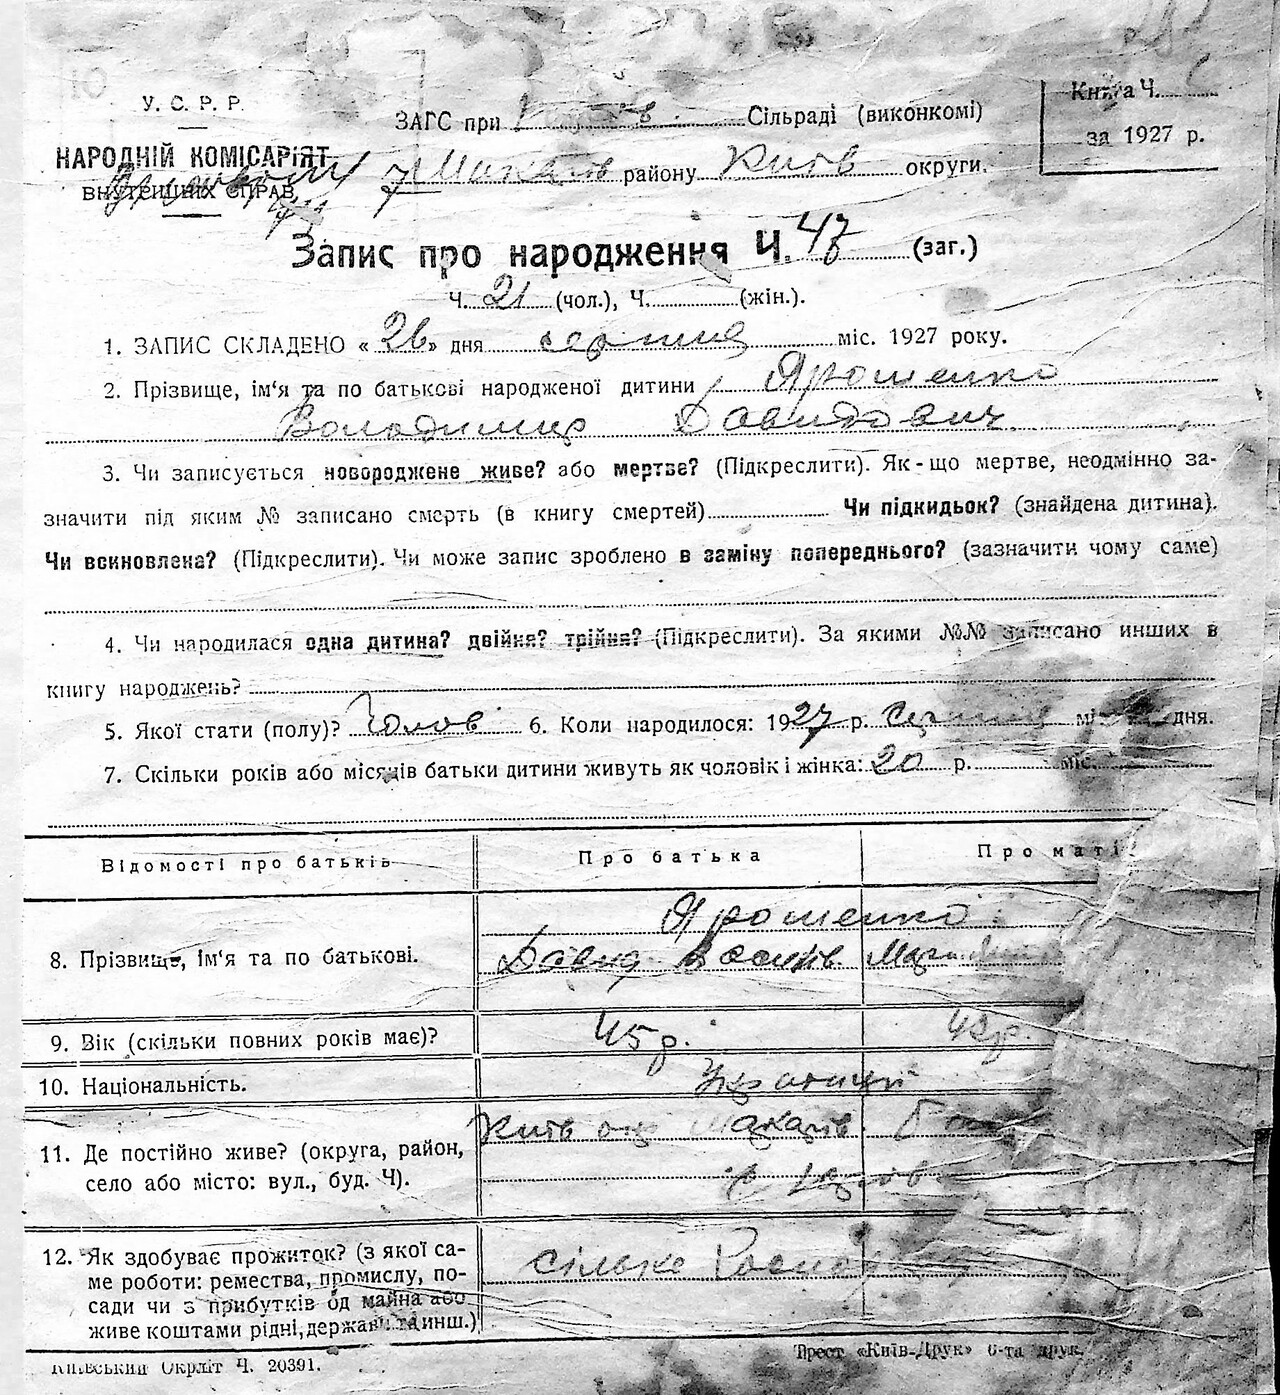 У. С. Р. Р.
НАРОДНІЙ КОМІСАРІЯТ
ВНУТРІШНІХ СПРАВ
ЗАГС при Сільраді (виконкомі)
Макарів району Київ округи.
Книга Ч.
за 1927 р.
Запис про народження Ч. 47 (заг.)
Ч. 21 (чол.), Ч. (жін.).
1. ЗАПИС СКЛАДЕНО « 26 » дня серпня міс. 1927 року.
2. Прізвище, ім‘я та по батькові народженої дитини Ярошенко
Володимир Давидович
3. Чи записується новороджене живе? або мертве? (Підкреслити). Як-що мертве, неодмінно за-
значити під яким № записано смерть (в книгу смертей) Чи підкидьок? (знайдена дитина).
Чи всиновлена? (Підкреслити). Чи може запис зроблено в заміну попереднього? (зазначити чому саме)
4. Чи народилася одна дитина? двійня? трійня? (Підкреслити). За якими №№ записано инших в
книгу народжень?
5. Якої стати (полу)? Чолов 6. Коли народилося: 1927 р. Серпня міс дня.
7. Скільки років або місяців батьки дитини живуть як чоловік і жінка: 20 р. міс.
Відомості про батьків Про батька Про маті
8. Прізвище, ім‘я та по батькові.
Ярошенко
Давид
9. Вік (скільки повних років має)? 45 р. 42 р.
10. Національність. Українці
11. Де постійно живе? (округа, район,
село або місто: вул., буд. Ч).
Київ окр Макарів
12. Як здобуває прожиток? (з якої са-
ме роботи: ремества, промислу, по-
сади чи з прибутків од майна або
живе коштами рідні, держави та инш.)
сільське
Київський Окрліт Ч. 20391.
Трест «Київ-Друк» 6-та друк.